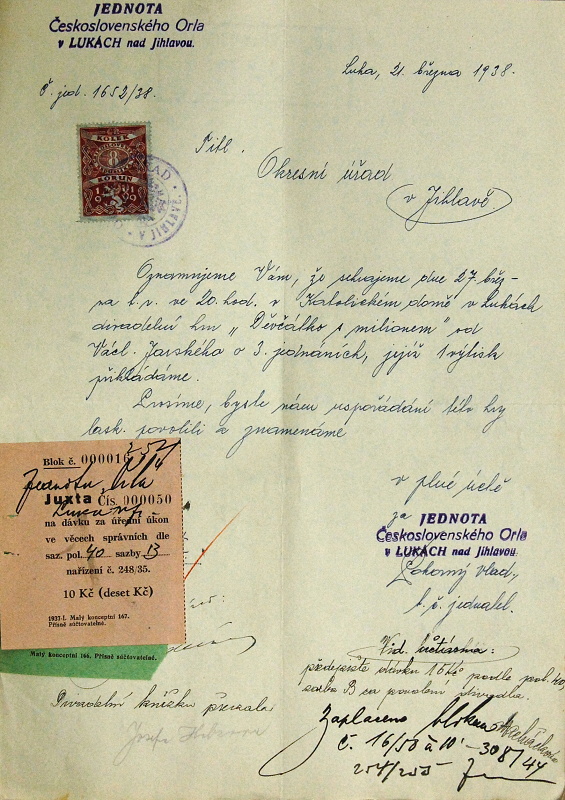 JEDNOTA
Československého Orla
v LUKÁCH nad Jihlavou.
Luka, 21. března 1938.
Č. jed. 1652/38.
KOLEK
8
KORUN
Titl.
Okresní úřad
v Jihlavě.
Oznamujeme Vám, že sehrajeme dne 27. břez-
na t.r. ve 20. hod. v Katolickém domě v Lukách
divadelní hru „Děvčátko s milionem" od
Václ. Jarského o 3. jednáních, jejíž 1 výtisk
přikládáme.
Prosíme, byste nám uspořádání této hry
lask. povolili a znamenáme
v plné úctě
za
JEDNOTA
Československého Orla
v LUKÁCH nad Jihlavou.
Pokorný Vlad.,
t. č. jednatel.
Blok č. 000016
Jednota Orla
Juxta Čís. 000050
Luka n/J.
na dávku za úřední úkon
ve věcech správních dle
saz. pol. 40 sazby B
nařízení č. 248/35.
10 Kč (deset Kč)
1937-I. Malý konceptní 167.
Přísně súčtovatelné.
Malý konceptní 166. Přísně súčtovatelné.
Vid. účtárna:
předepište dávku podle pol. 40,
sazba B za povolení divadla.
Divadelní knížku převzala:
Josefa
Zaplaceno blokem
č. 16/50 à 10 - 308/44
254/255